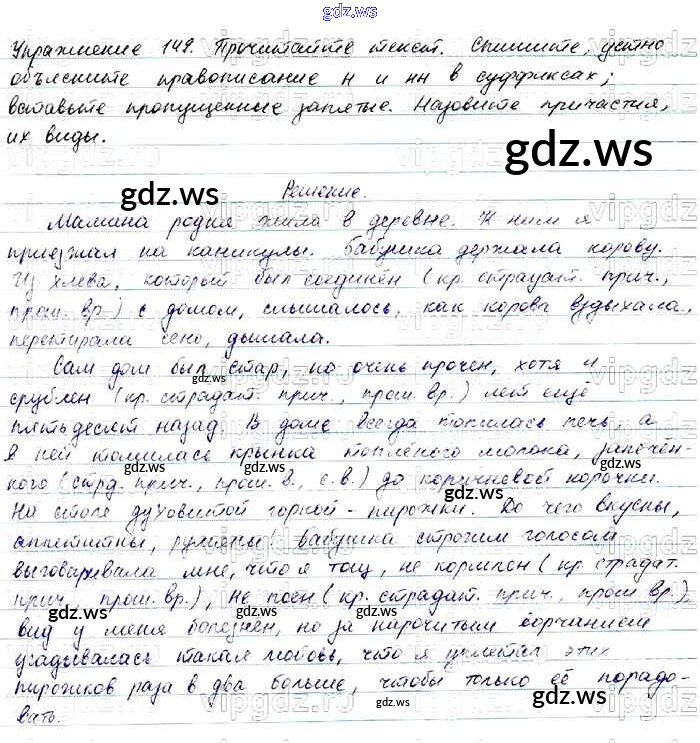 gdz.ws
Упражнение 149. Прочитайте текст. Спишите, устно
объясните правописание н и нн в суффиксах;
вставьте пропущенные запятые. Назовите причастия,
их виды.
gdz.ws
gdz.ws
Решение.
Мамина родня жила в деревне. К ним я
приезжал на каникулы. Бабушка держала корову.
Из хлева, который был соединён (кр. страдат. прич.,
прош. вр.) с домом, слышалось, как корова вздыхала,
перетирала сено, дышала.
Сам дом был стар, но очень прочен, хотя и
срублен (кр. страдат. прич., прош. вр.) лет ещё
пятьдесят назад. В доме всегда топилась печь, а
в ней томилась крынка топлёного молока, запечён-
ного (стрд. прич., прош. в., с.в.) до коричневой корочки.
На столе духовитой горкой - пирожки. До чего вкусны,
аппетитны, румяны! Бабушка строгим голосом
выговаривала мне, что я тощ, не кормлен (кр. страдат.
прич., прош. вр.), не поен (кр. страдат. прич., прош. вр.),
вид у меня болезнен, но за нарочитым ворчанием
угадывалась такая любовь, что я уплетал этих
пирожков раза в два больше, чтобы только её порадо-
вать.
gdz.ws